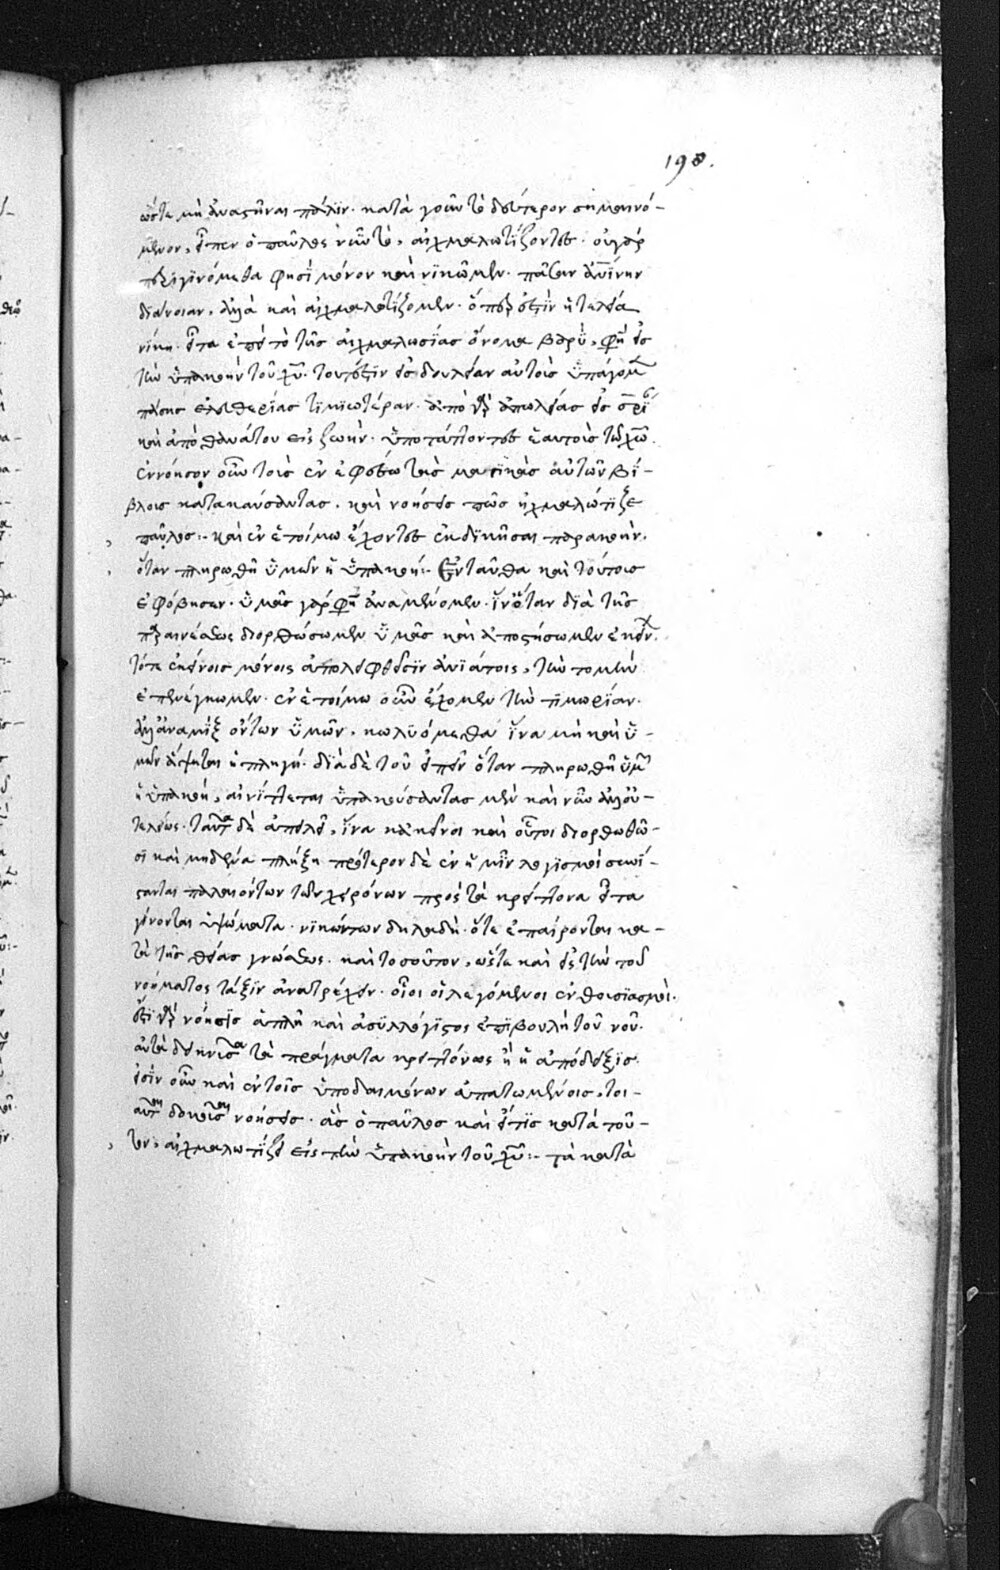 198.
ὥστε μὴ ἀναστῆναι πάλιν. κατὰ γοῦν τὸ δεύτερον σημαινό-
μενον, εἶπεν ὁ παῦλος νῦν τὸ, αἰχμαλωτίζοντες. οὐ γὰρ
περιγινόμεθα φησὶ μόνον καὶ νικῶμεν. πᾶσαν
διάνοιαν, ἀλλὰ καὶ αἰχμαλωτίζομεν. ὅπερ ἐστὶν ἡ τελεία
νίκη. εἶτα ἐπεὶ τὸ τῆς αἰχμαλωσίας ὄνομα βαρὺ, φη εἰς
τὴν ὑπακοὴν τοῦ χυ. τουτέστιν ἐκ δουλείαν αὐτοῖς ὑπάγομ
πάσης ἐλευθερίας τιμιωτέραν. ἀπὸ γὰρ ἀπωλείας εἰς σρι
καὶ ἀπὸ θανάτου εἰς ζωὴν. ὑποτάττοντες ἑαυτοῖς τῷ χω.
ἐννόησον οὖν τοὺς ἐν ἐφέσω τὰς μαγικὰς αὐτῶν βί-
βλους κατακαύσαντας. καὶ νοήσεις πῶς ἠχμαλώτιζε
παῦλος:- καὶ ἐν ἑτοίμω ἔχοντες ἐκδικῆσαι παρακοὴν.
ὅταν πληρωθῆ ὑμῶν ἡ ὑπακοή:- Ἐνταῦθα καὶ τούτους
ἐφόβησεν. ὑμᾶς γὰρ φη ἀναμένομεν. ἵν ὅταν διὰ τῆς
παραινέσεως διορθώσωμεν ὑμᾶς καὶ ἀποστήσωμεν ἐκείν.
τότε ἐκείνοις μόνοις ἀπολειφθεῖσιν ἀνιάτοις, τὴν τομὴν
ἐπενέγκωμεν. ἐν ἑτοίμω οὖν ἔχομεν τὴν τιμωρίαν.
ἀλλ' ἀναμὶξ ὄντων ὑμῶν, κωλυόμεθα ἵνα μὴ καὶ ὑ-
μῶν ἅψηται ἡ πληγή. διὰ δὲ τοῦ εἰπεῖν ὅταν πληρωθῆ ὑμ
ἡ ὑπακοή, αἰνίττεται ὑπακούσαντας μὲν καὶ νῦν ἀλλ' οὐ-
τελέως. ταῦτα δὲ ἀπειλεῖ, ἵνα κἀκεῖνοι καὶ οὗτοι διορθωθῶ-
σι καὶ μηδένα πλήξη πρότερον δὲ ἐν ἡμῖν λογισμοὶ συνί-
στανται παλαιόντων τῶν χειρόνων πρὸς τὰ κρείττονα εἶτα
γίνονται ὑψώματα. νικώντων δηλαδὴ. ὅτε ἐπαίρονται κα-
τὰ τῆς θείας γνώσεως. καὶ τοσοῦτον, ὥστε καὶ εἰς τὴν τοῦ
νοήματος τάξιν ἀνατρέχειν. οἷοι οἱ λεγόμενοι ἐνθουσιασμοὶ.
ἔστι γὰρ νόησις ἁπλῆ καὶ ἀσυλλόγιστος ἐπιβουλὴ τοῦ νοῦ.
τὰ πράγματα κρειττόνως ἢ ἡ ἀπόδειξις.
εἰσὶν οὖν καὶ ἐν τοῖς ὑπὸ δαιμόνων ἀπατωμένοις, τοι-
νοήσεις. ἃς ὁ παῦλος καὶ εἴ τις κατὰ τοῦ-
τον, αἰχμαλωτίζει εἰς τὴν ὑπακοὴν τοῦ χυ:- τὰ κατὰ